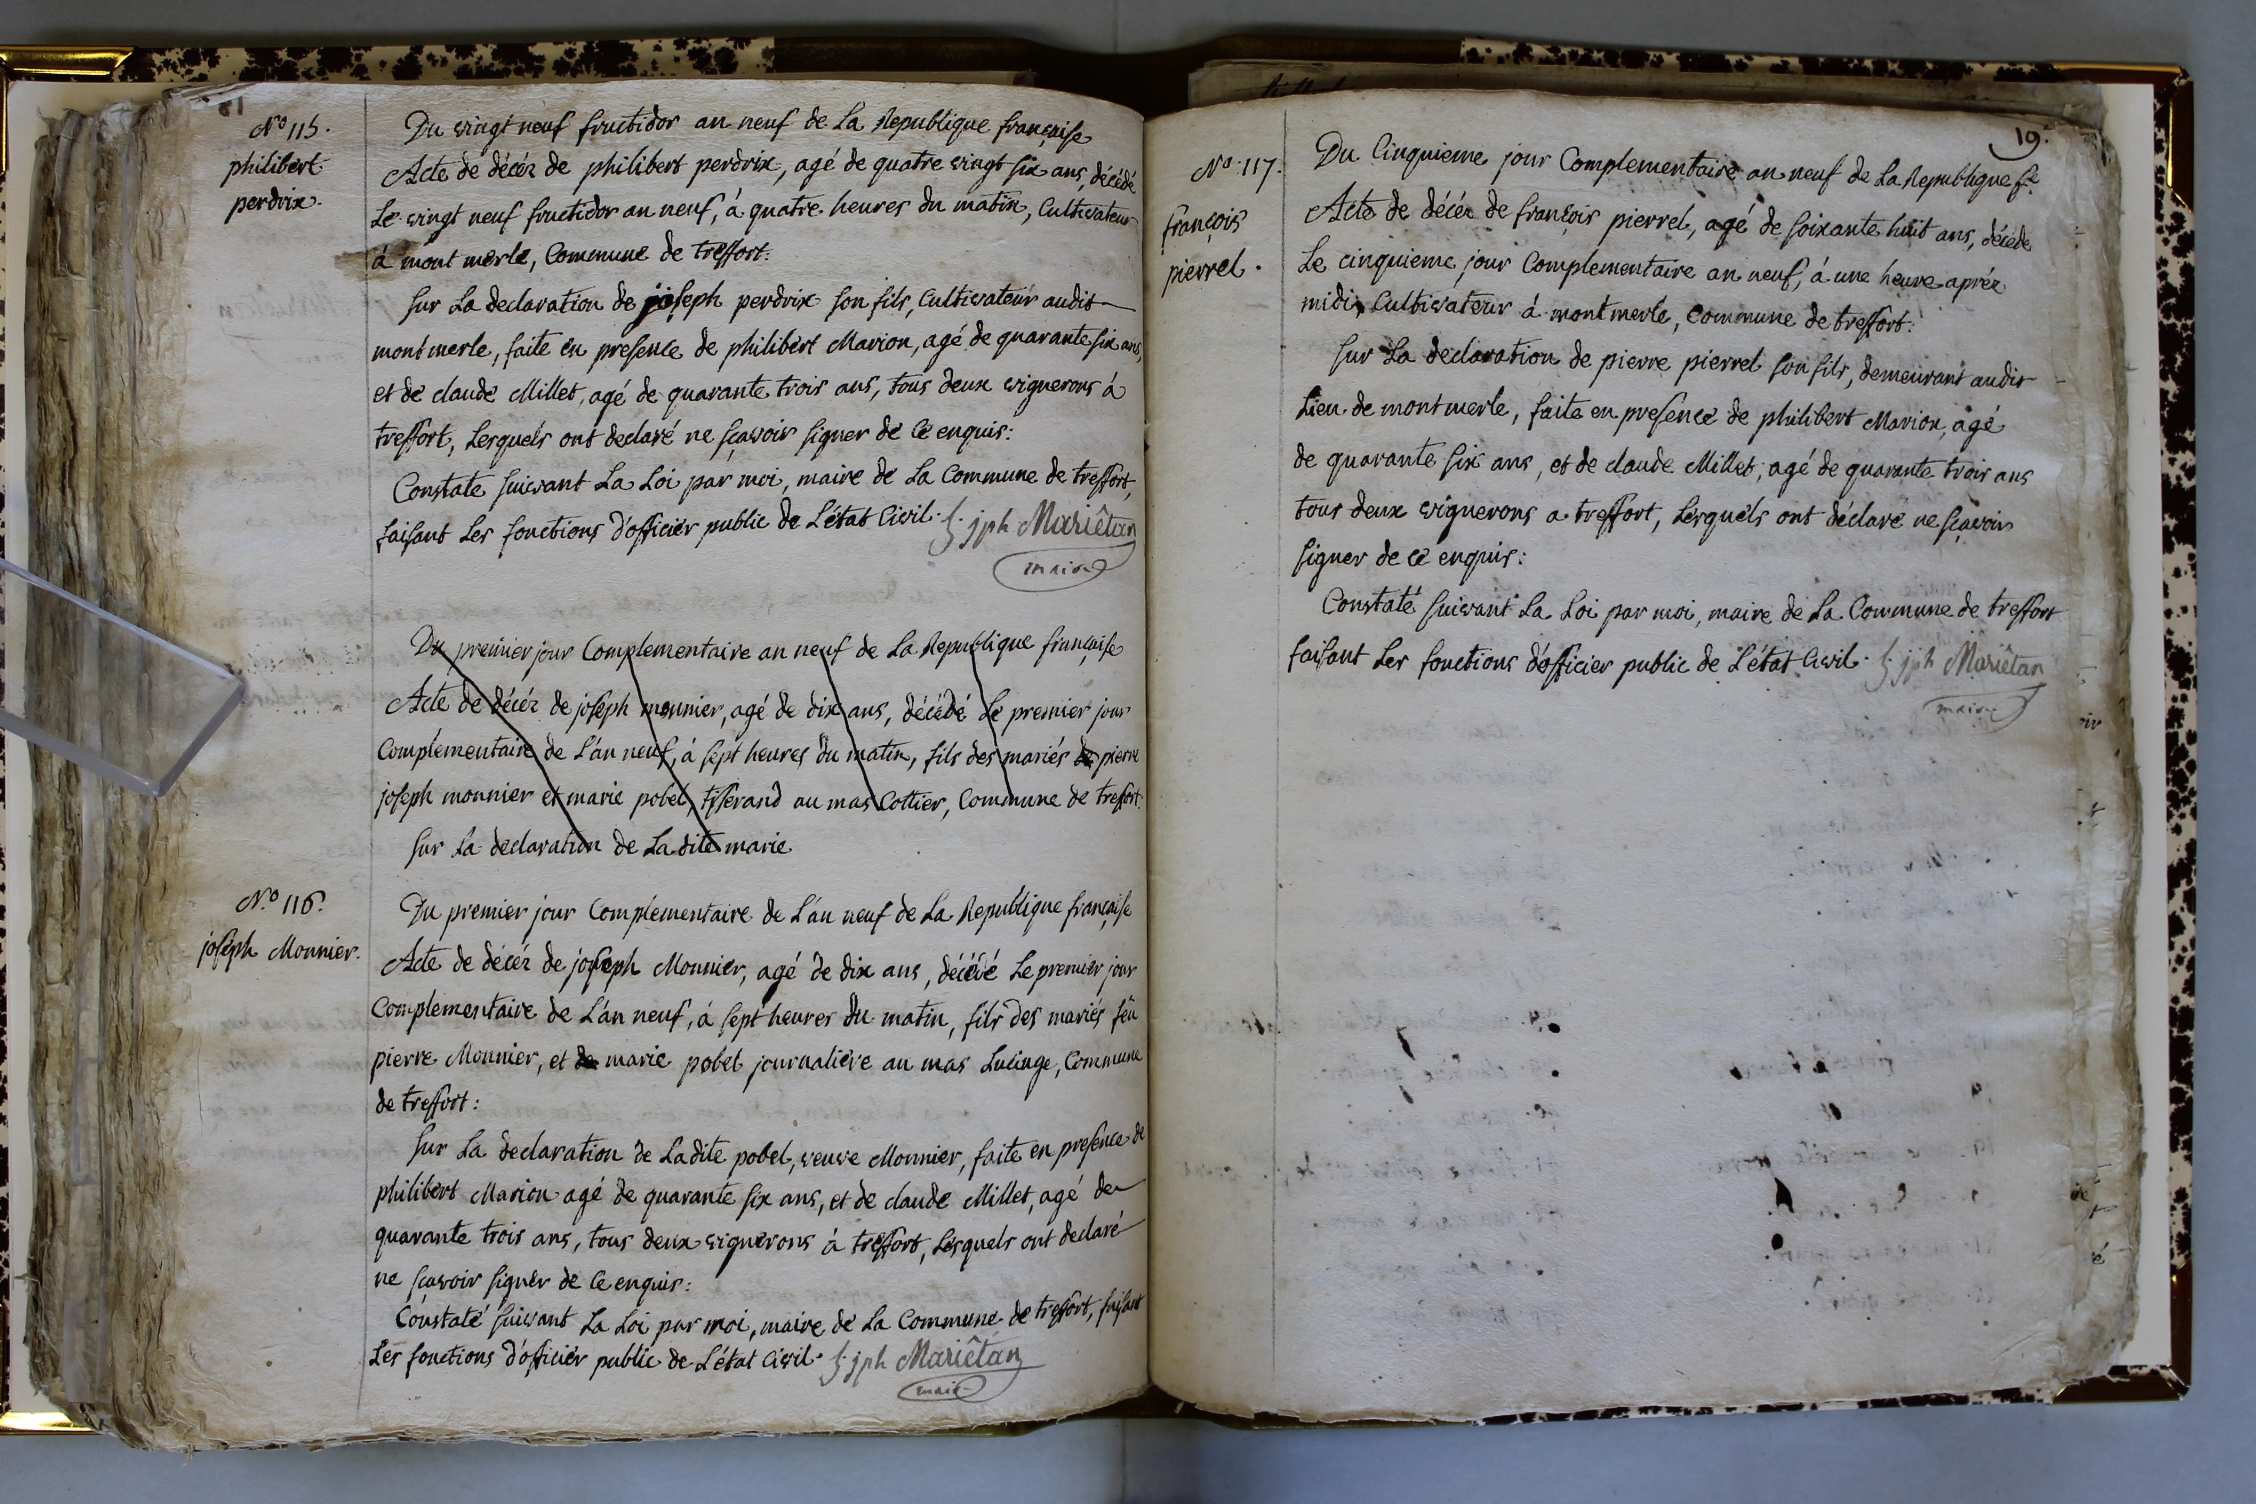 N.o 115.
philibert
perdrix.
Du vingt neuf fructidor an neuf de La Republique française
Acte de décéz de philibert perdrix, agé de quatre vingt six ans, décédé
Le vingt neuf fructidor an neuf, à quatre heures du matin, Cultivateur
à mont merle, Commune de treffort:
sur La declaration de joseph perdrix son fils, Cultivateur audit
mont merle, faite en presence de philibert Marion, agé de quarante six ans,
et de claude Millet, agé de quarante trois ans, tous deux vignerons à
treffort, Lesquels ont declaré ne sçavoir signer de ce enquis:
Constaté suivant La Loi par moi, maire de La Commune de treffort,
faisant Les fonctions d'officier public de L'état Civil. jph Mariêtan
maire
Du premier jour Complementaire an neuf de La Republique française
Acte de décéz de joseph monnier, agé de dix ans, décédé Le premier jour
Complementaire de L'an neuf, à sept heures du matin, fils des mariés de pierre
joseph monnier et marie pobel, tisserand au mas Cottier, Commune de treffort.
sur La declaration de La dite marie
N.o 116.
joseph Monnier.
Du premier jour Complementaire de L'an neuf de La Republique française
Acte de décéz de joseph Monnier, agé de dix ans, décédé Le premier jour
Complementaire de L'an neuf, à sept heures du matin, fils des mariés feu
pierre Monnier, et de marie pobel journaliére au mas Lucinge, Commune
de treffort:
sur La declaration de Ladite pobel, veuve Monnier, faite en presence de
philibert Marion agé de quarante six ans, et de claude Millet, agé de
quarante trois ans, tous deux vignerons à treffort, Lesquels ont declaré
ne sçavoir signer de Ce enquis:
Constaté suivant La Loi par moi, maire de La Commune de treffort, faisant
Les fonctions d'officier public de L'état Civil. jph Mariêtan
maire
19.
N.o 117.
françois
pierrel.
Du Cinquieme jour Complementaire an neuf de La Republique f.se
Acte de décéz de françois pierrel, agé de soixante huit ans, décédé
Le cinquieme jour Complementaire an neuf, à une heure aprés
midi, Cultivateur à montmerle, Commune de treffort:
sur La declaration de pierre pierrel son fils, demeurant audit
Lieu de montmerle, faite en presence de philibert Marion, agé
de quarante six ans, et de claude Millet, agé de quarante trois ans
tous deux vignerons a treffort, Lesquels ont déclaré ne sçavoir
signer de ce enquis:
Constaté suivant La Loi par moi, maire de La Commune de treffort
faisant Les fonctions d'officier public de L'état Civil. jph Mariêtan
maire